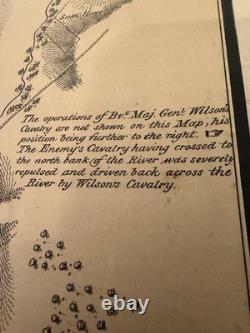 The operations of Bvt. Maj. Genl. Wilson's
Cavalry are not shown on this Map, his
position being further to the right.
The Enemy's Cavalry having crossed to
the north bank of the River was severely
repulsed and driven back across the
River by Wilson's Cavalry.